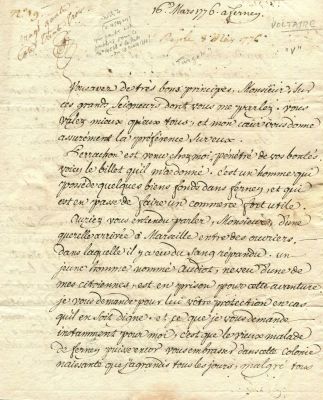 16 Mars 1776 a ferney.
VOLTAIRE
"V"
Vous avez de très bons principes, Monsieur, sur
ces grands Seigneurs dont vous me parlez. vous
valez mieux qu'eux tous, et mon cœur vous donne
assurément la préférence sur eux.
Perrachon est venu chez moi pénétré de vos bontés
voici le billet qu'il m'a donné. c'est un homme qui
possède quelques biens fonds dans ferney, et qui
est en passe de faire un commerce fort utile.
Auriez vous entendu parler, Monsieur, d'une
querelle arrivée à Marseille entre des ouvriers,
dans laquelle il y a eu du sang répandu. un
jeune homme nommé Audiot, neveu d'une de
mes citoiennes, est en prison pour cette avanture
je vous demande pour lui vôtre protection en cas
qu'il en soit digne. et ce que je vous demande
instamment pour moi, c'est que le vieux malade
de ferney puisse encor vous embrasser dans cette colonie
naissante que j'agrandis tous les jours, malgré tous